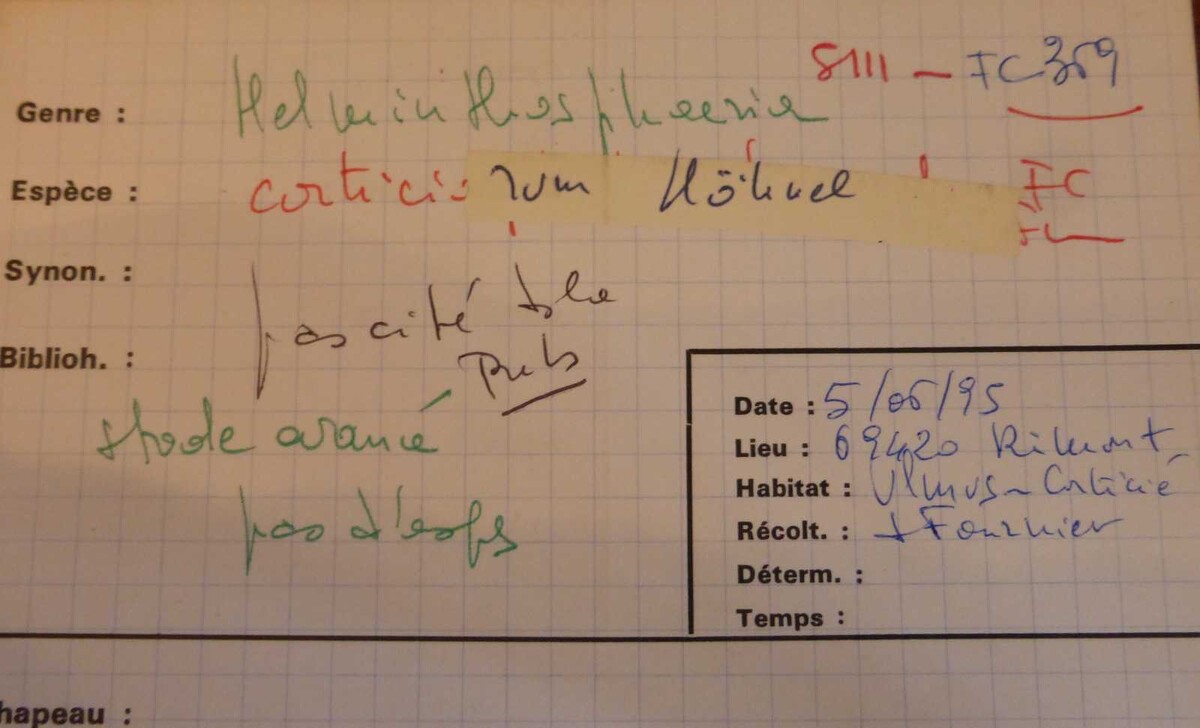 SIII - FC359
Genre : Helminthosphaeria
Espèce : corticiorum Höhnel ! FC
Synon. :
pas cité
Biblioh. :
stade avancé
pas d'asps
Date : 5/05/95
Lieu : 69420 Rimont
Habitat : Ulmus - Corticié
Récolt. : J Fournier
Déterm. :
Temps :
hapeau :